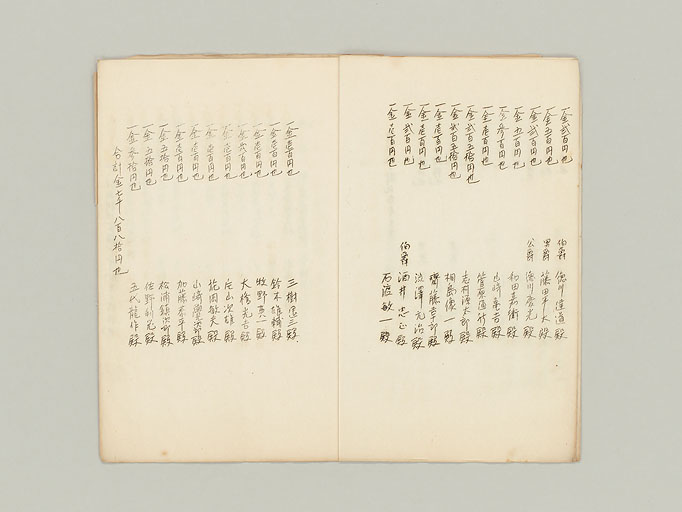 一金弐百円也 伯爵 徳川達道殿
一金五百円也 男爵 藤田平太 殿
一金弐百円也 公爵 徳川慶光殿
一金五百円也 和田嘉衛殿
一金参百円也 山崎亀吉殿
一金壱百円也 菅原通済殿
一金弐百五拾円也 志村源太郎殿
一金弐百五拾円也 相島 一殿
一金壱百円也 齋藤 郎殿
一金壱百円也 渋澤元治殿
一金弐百円也 伯爵 酒井忠正殿
一金壱百円也 石渡敏一殿
一金壱百円也 三樹退三殿
一金壱百円也 鈴木雄輔殿
一金壱百円也 牧野 八殿
一金弐百円也 大橋光吉殿
一金壱百円也 片山次雄殿
一金壱百円也 花岡敏夫殿
一金壱百円也 山崎覚次郎殿
一金壱百円也 加藤恭平殿
一金五拾円也 松浦鎮次郎殿
一金五拾円也 佐野利 殿
一金参拾円也 五代龍作殿
合計金七千八百八拾円也